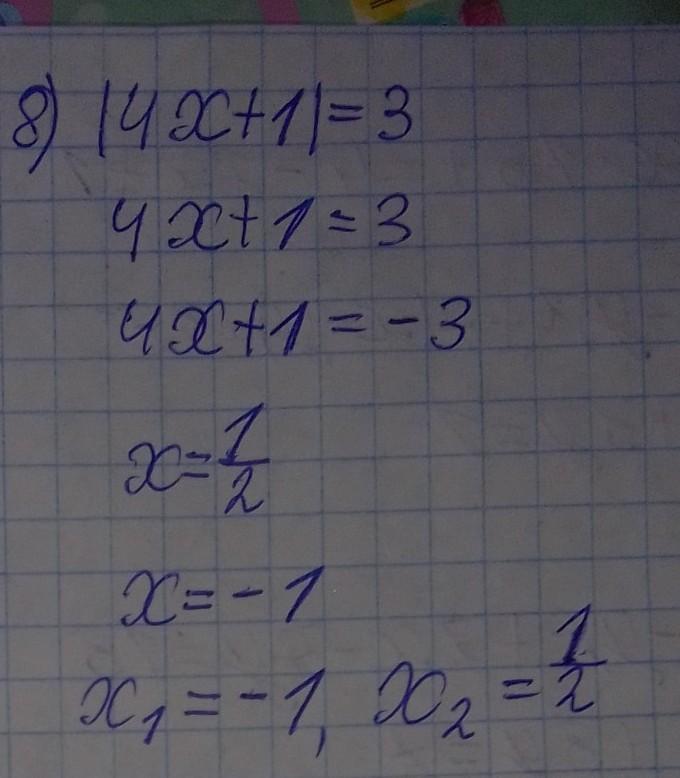 8) |4x+1|=3
4x+1=3
4x+1=-3
x=1/2
x=-1
x₁=-1, x₂=1/2